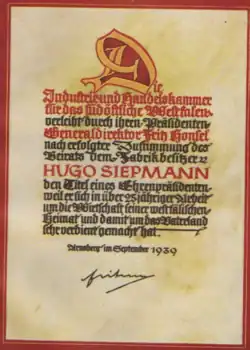 Die
Industrie und Handelskammer
für das südöstliche Westfalen
verleiht durch ihren Präsidenten
Generaldirektor Fritz Honsel
nach erfolgter Zustimmung des
Beirats dem Fabrikbesitzer
HUGO SIEPMANN
den Titel eines Ehrenpräsidenten
weil er sich in über 25jähriger Arbeit
um die Wirtschaft seiner westfälischen
Heimat und damit um das Vaterland
sehr verdient gemacht hat.
Arnsberg im September 1939